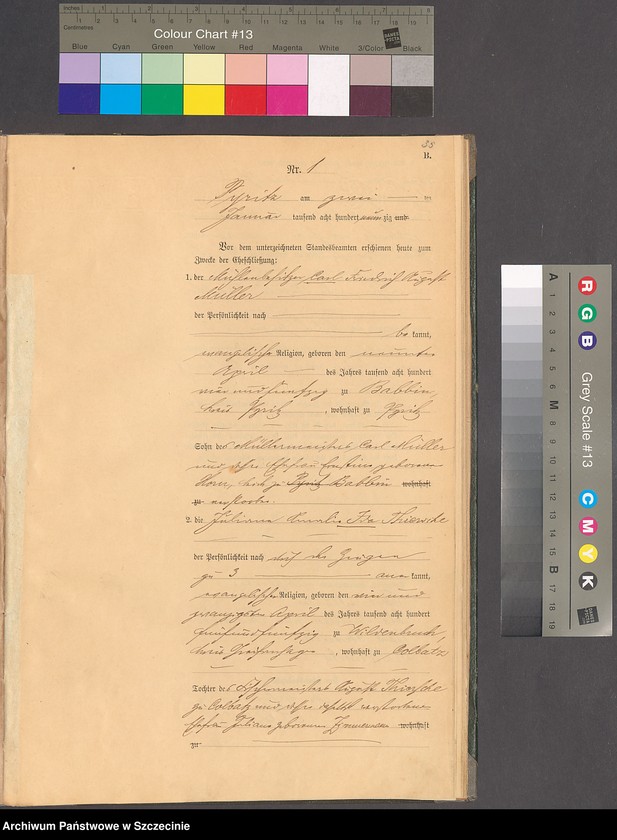 Inches
Centimetres
Colour Chart #13
Blue Cyan Green Yellow Red Magenta White 3/Color Black
35
B.
Nr. 1
Pyritz am zwei
Januar tausend acht hundert neunzig und
Vor dem unterzeichneten Standesbeamten erschienen heute zum
Zwecke der Eheschließung:
1. der Mühlenbesitzer Carl Friedrich August
Müller
der Persönlichkeit nach
be kannt,
evangelischer Religion, geboren den neunten
April des Jahres tausend acht hundert
vier und fünfzig zu Babbin,
Kreis Pyritz, wohnhaft zu Pyritz
Sohn des Müllermeisters Carl Müller
und dessen Ehefrau geborene
Horn, zu Pyritz Babbin wohnhaft
zu verstorben.
2. die Juliane Amalie Ida Thiersche
der Persönlichkeit nach durch die Zeugen
zu 3 aner kannt,
evangelischer Religion, geboren den vier und
zwanzigsten April des Jahres tausend acht hundert
fünfundfünfzig zu Wildenbruch,
Kreis Greifenhagen, wohnhaft zu Colbatz
Tochter des August Thiersche
zu Colbatz und dessen daselbst verstorbene
Ehefrau Juliane geborenen wohnhaft
zu
R G B
Grey Scale #13
C M Y K
A 1 2 3 4 5 6 M 8 9 10 11 12 13 14 15 B 17 18 19
DANES PICTA
Archiwum Państwowe w Szczecinie